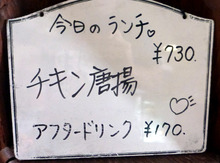 今日のランチ。
¥730.
チキン唐揚
アフタードリンク ¥170.